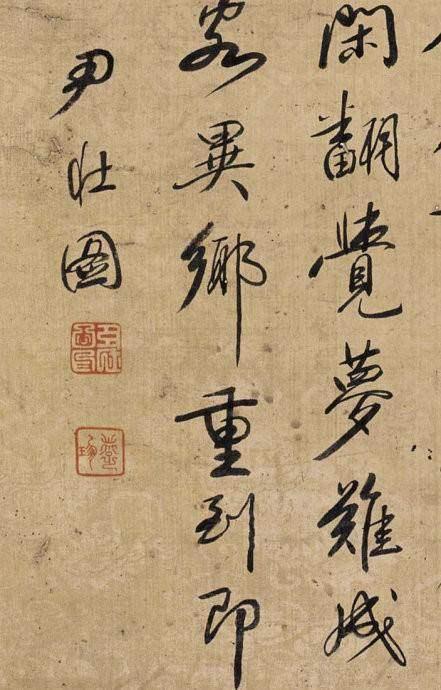 閑翻覺夢難成
客異鄉重到即
尹壯圖